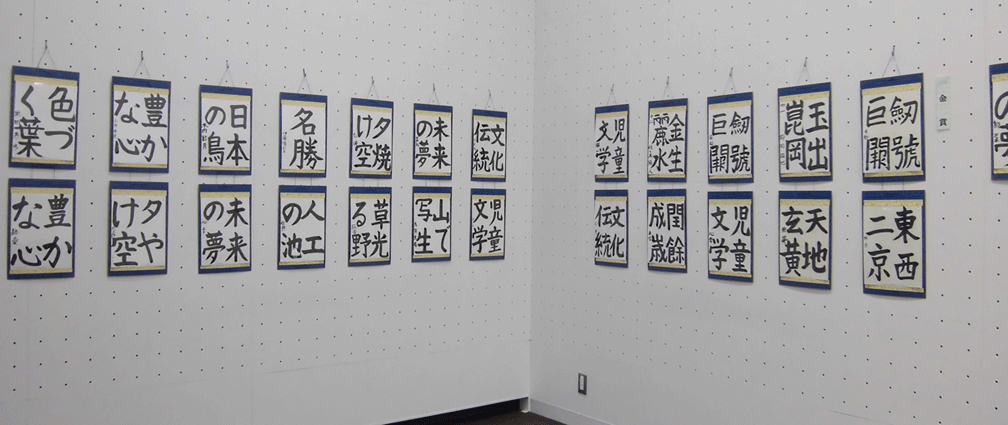 色づ
く葉
豊か
な心
日本
の鳥
名勝
夕焼
け空
未来
の夢
文化
伝統
豊か
な心
夕や
け空
未来
の夢
人工
の池
草光
る野
山で
写生
児童
文学
児童
文学
金生
麗水
劒號
巨闕
玉出
崑岡
劒號
巨闕
金賞
文化
伝統
閏餘
成歳
児童
文学
天地
玄黄
東西
二京